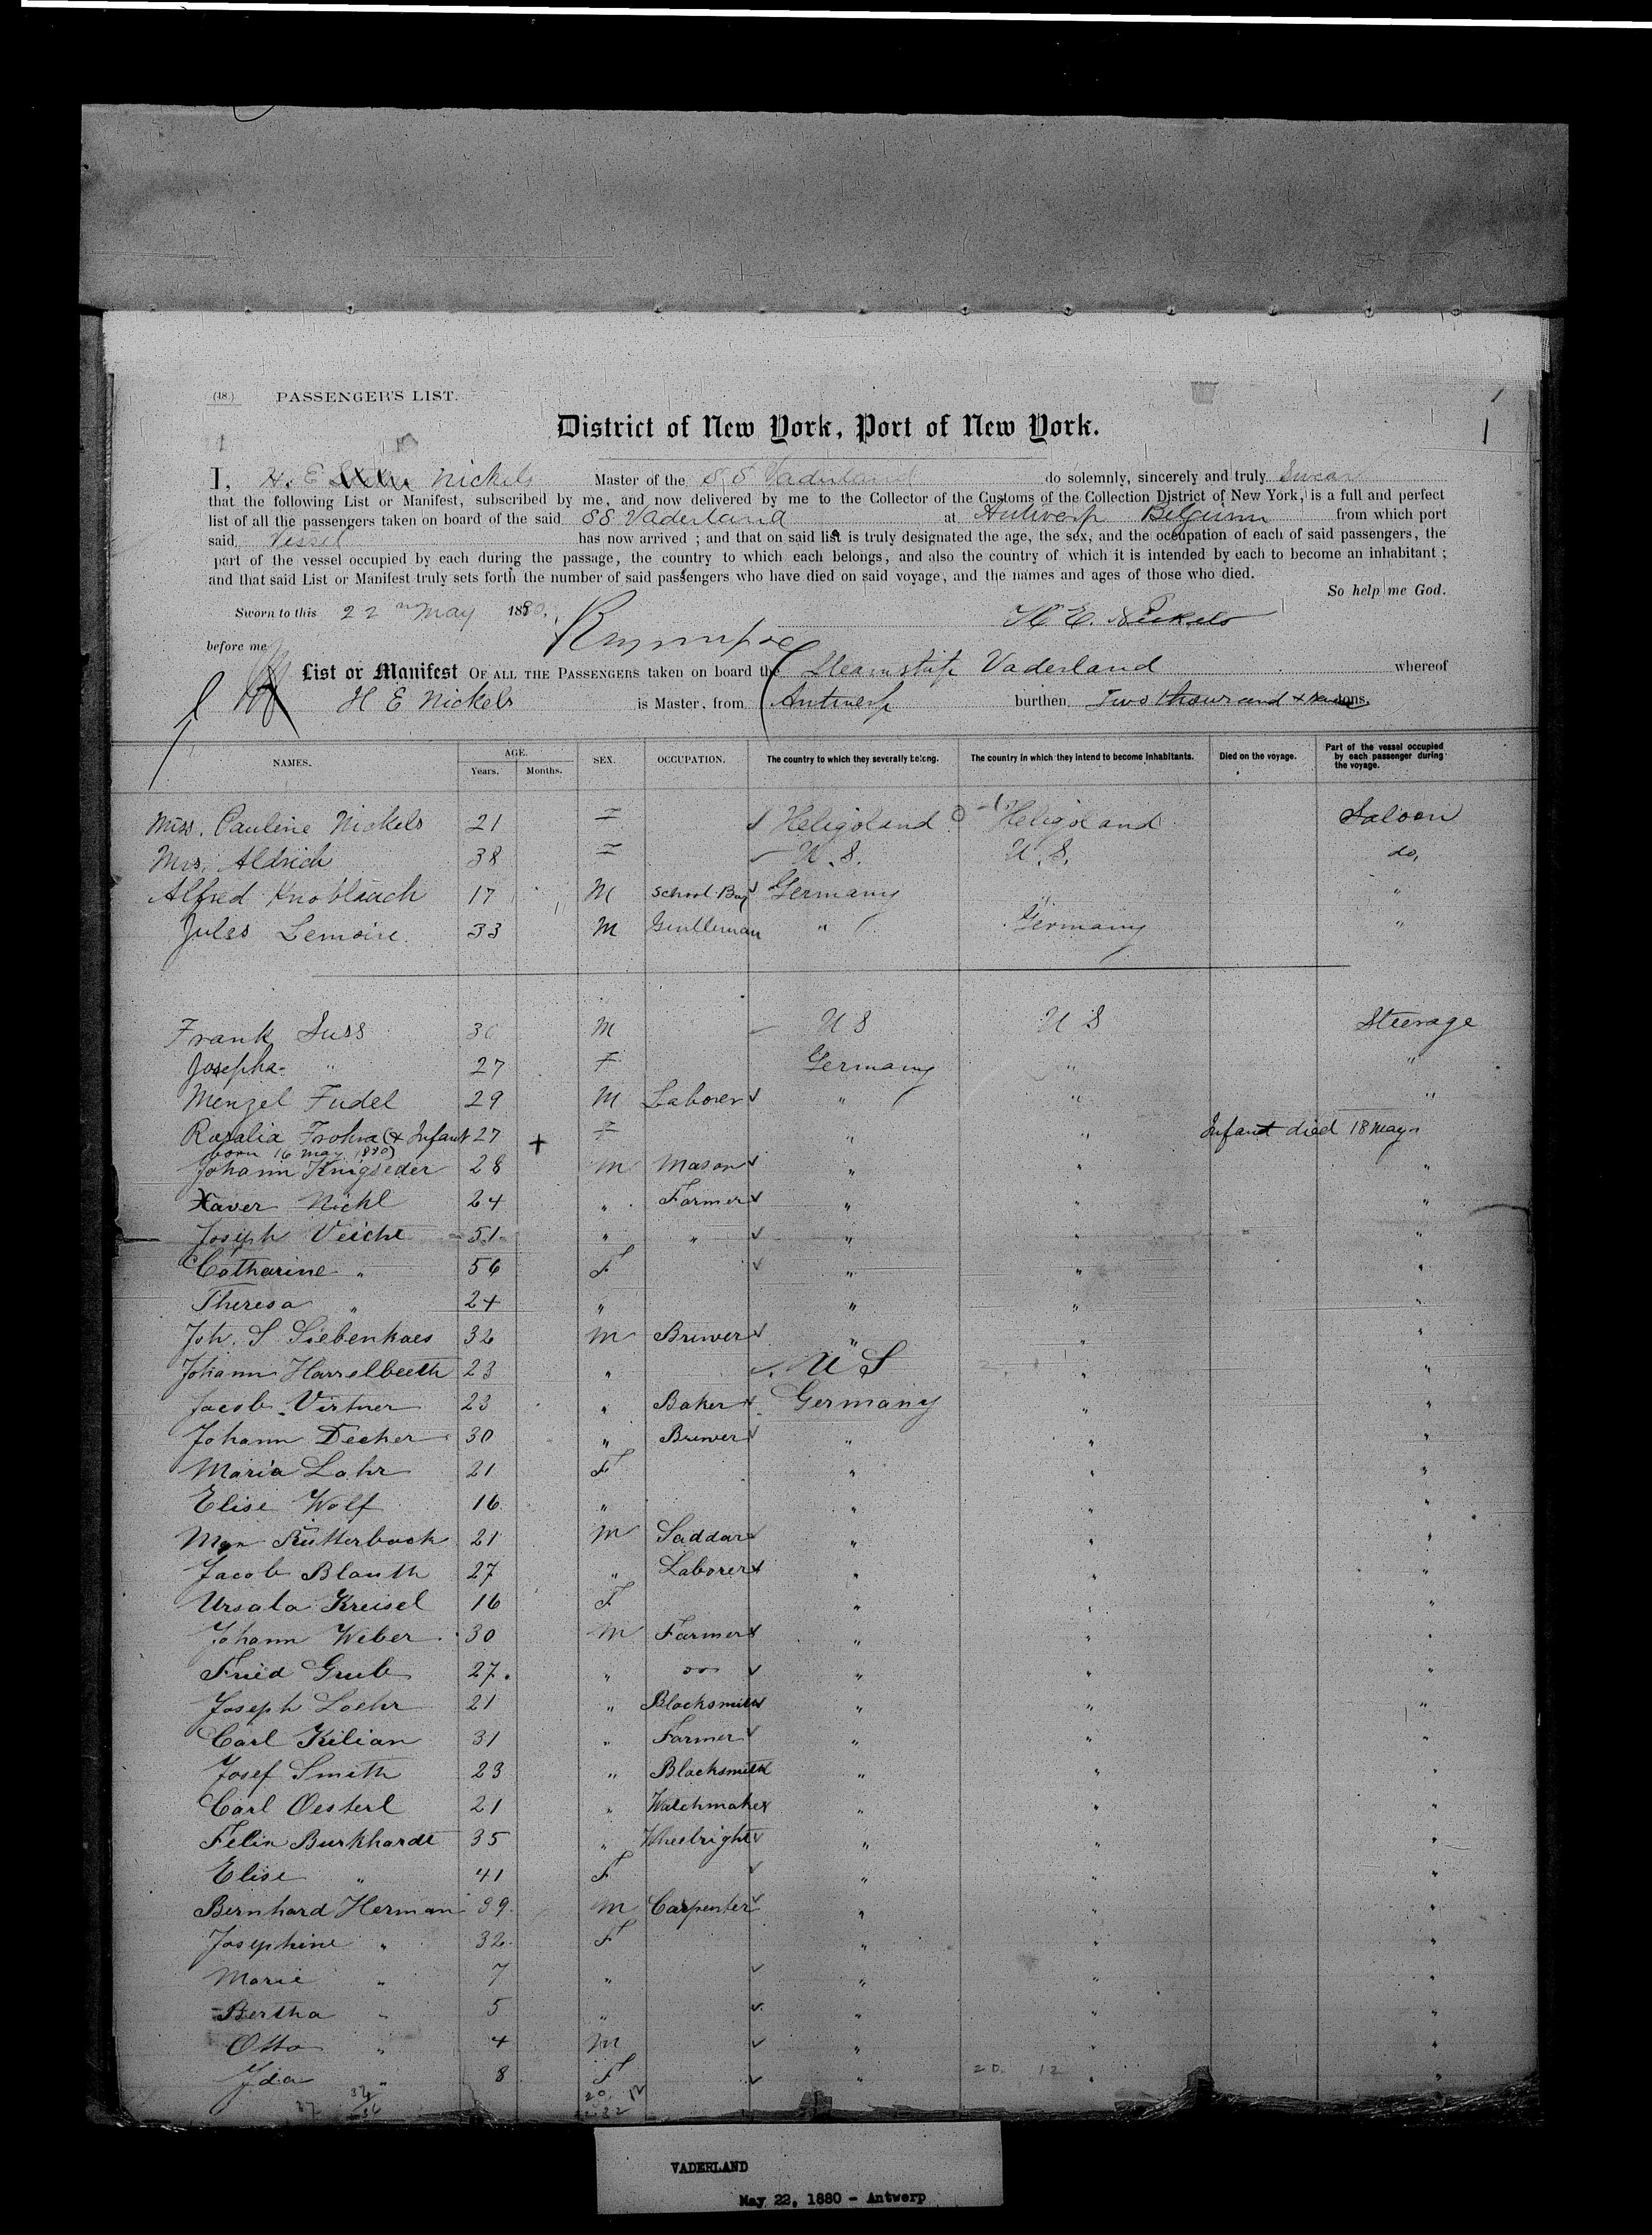 (48.) PASSENGER'S LIST.
1
District of New York, Port of New York.
1
I, H. E. Nickels Master of the S S Vaderland do solemnly, sincerely and truly Swear
that the following List or Manifest, subscribed by me, and now delivered by me to the Collector of the Customs of the Collection District of New York, is a full and perfect
list of all the passengers taken on board of the said SS Vaderland at Antwerp Belgium from which port
said Vessel has now arrived ; and that on said list is truly designated the age, the sex, and the occupation of each of said passengers, the
part of the vessel occupied by each during the passage, the country to which each belongs, and also the country of which it is intended by each to become an inhabitant ;
and that said List or Manifest truly sets forth the number of said passengers who have died on said voyage, and the names and ages of those who died.
So help me God.
Sworn to this 22nd May 1880. H. E. Nickels
before me
List or Manifest OF ALL THE PASSENGERS taken on board the Steamship Vaderland whereof
H E Nickels is Master, from Antwerp burthen Two thousand + tons.
NAMES. AGE. Years. Months. SEX. OCCUPATION. The country to which they severally belong. The country in which they intend to become inhabitants. Died on the voyage. Part of the vessel occupied by each passenger during the voyage.
Miss. Pauline Nickels 21 F Heligoland Heligoland Saloon
Mrs. Aldrich 38 F U.S. U.S. do,
Alfred Knoblauch 17 M School Boy Germany " "
Jules Lemoire 33 M Gentleman " Germany "
Frank Suss 30 M U S U S Steerage
Josepha " 27 F Germany " "
Menzel Fudel 29 M Laborer " " "
Rosalia Frohna (& Infant 27 + F " " Infant died 18 May "
born 16 May 1880)
Johann Knigseder 28 M Mason " " "
Xaver Nickl 24 " Farmer " " "
Joseph Veicht 51 " " " " "
Catharine " 56 F " " "
Theresa " 24 " " " "
Joh. S Siebenkaes 32 M Brewer " " "
Johann Harrelbeeth 23 " U S " "
Jacob Virtner 23 " Baker Germany " "
Johann Decker 30 " Brewer " " "
Maria Lahr 21 F " " "
Elise Wolf 16 " " " "
Man Rütterbach 21 M Saddar " " "
Jacob Blauth 27 " Laborer " " "
Ursala Kreisel 16 F " " "
Johann Weber 30 M Farmer " " "
Fried Grub 27 " do " " "
Joseph Loehr 21 " Blacksmith " " "
Carl Kilian 31 " Farmer " " "
Josef Smith 23 " Blacksmith " " "
Carl Oesterl 21 " Watchmaker " " "
Felin Burkhardt 35 " Wheelright " " "
Elise " 41 F " " "
Bernhard Herman 39 M Carpenter " " "
Josephine " 32 F " " "
Marie " 7 " " " "
Bertha " 5 " " " "
Otto " 4 M " " "
Ida " 8 F " 20. 12 " "
VADERLAND
May 22, 1880 - Antwerp